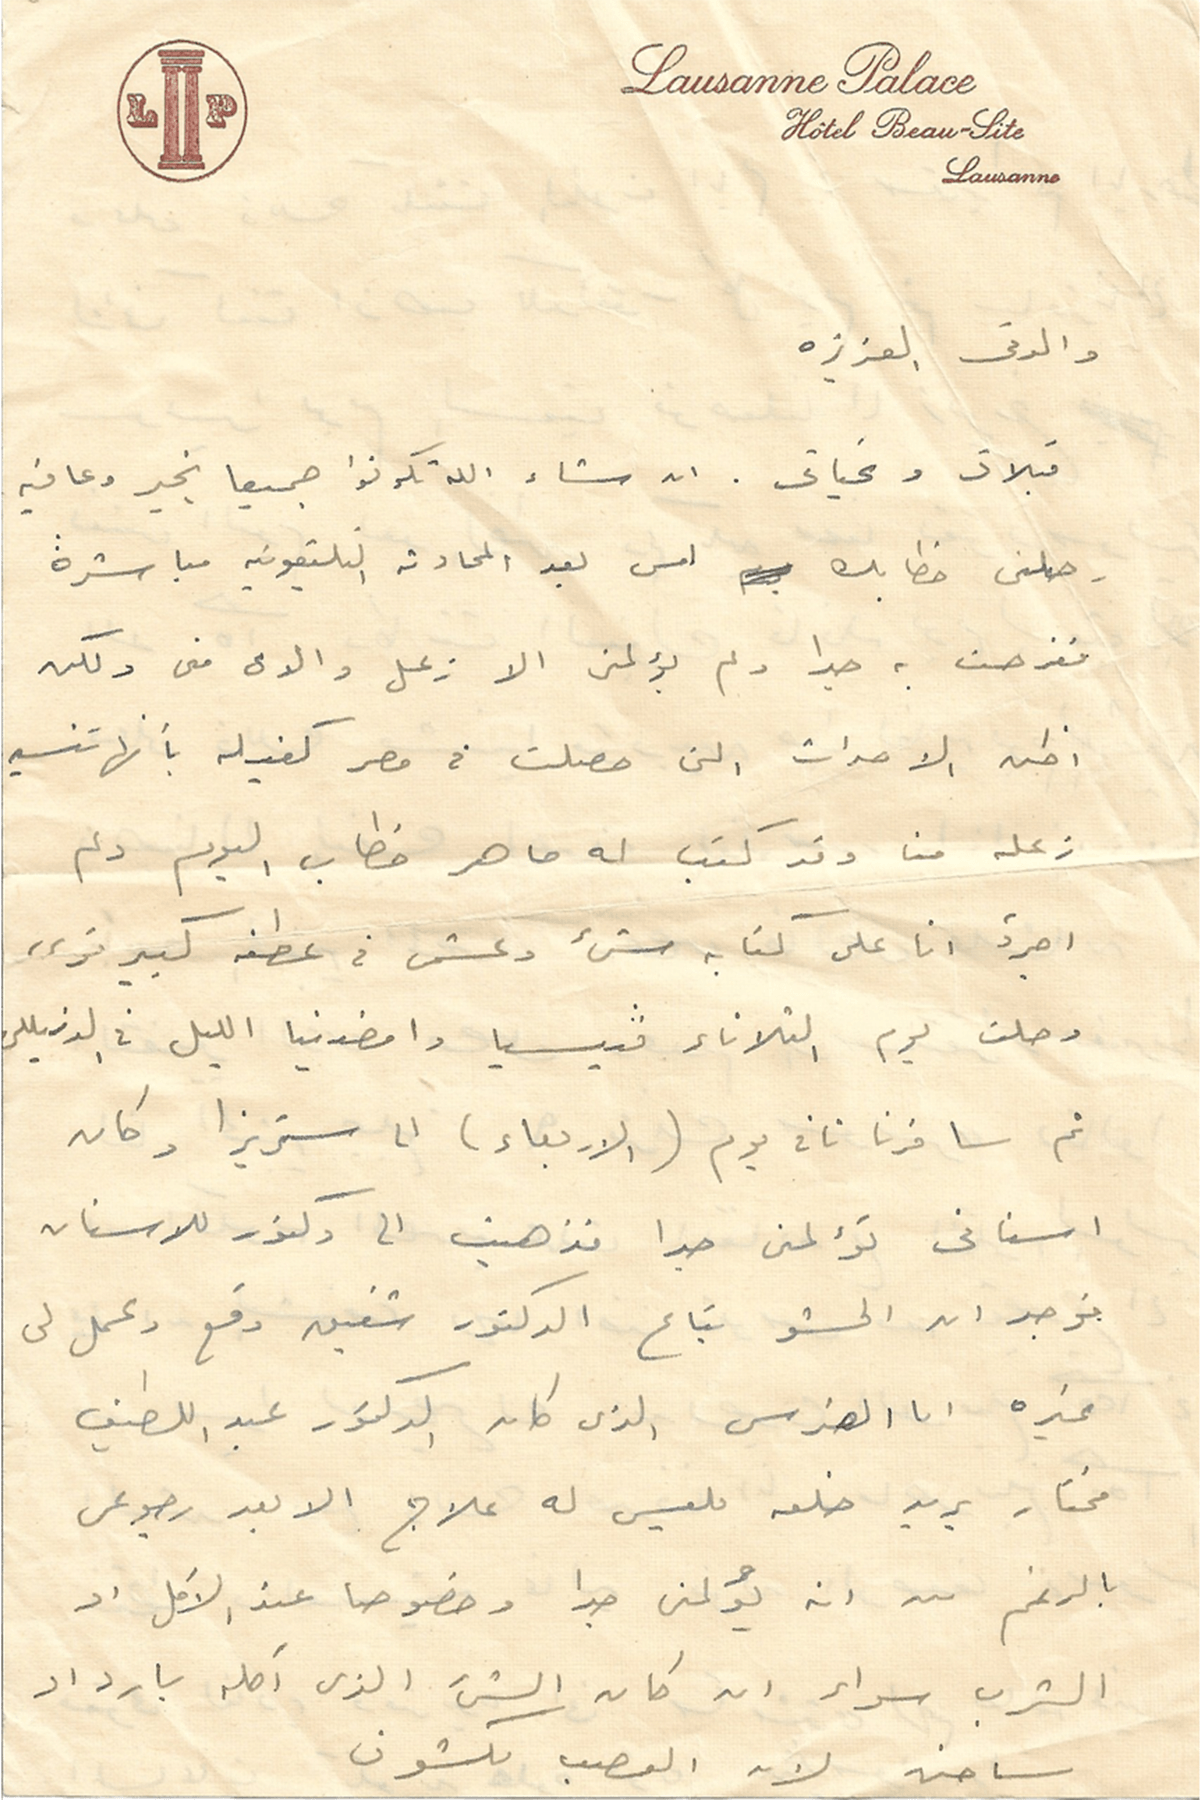 L P
Lausanne Palace
Hôtel Beau-Site
Lausanne
والدتى العزيزه
قبلاتى وتحياتى . ان شاء الله تكونوا جميعا بخير وعافيه
وصلنى خطابك امس بعد المحادثه التليفونيه مباشرة
ففرحت به جدا ولم يؤلمنى الا زعل والدى منى ولكن
اظن الاحداث التى حصلت فى مصر كفيله بأنها تنسيه
زعله منا وقد كتب له ماهر خطاب اليوم ولم
اجرؤ انا على كتابه شئ وعشمى فى عطفه كبير قوى
وصلت يوم الثلاثاء ڤنيسيا وامضينا الليل فى
ثم سافرنا ثانى يوم (الاربعاء) الى ستريزا وكان
اسنانى تؤلمنى جدا فذهبت الى دكتور للاسنان
فوجد ان الحشو بتاع الدكتور شفيق وقع وعمل لى
غيره اما الضرس الذى كان الدكتور عبد اللطيف
مختار يريد خلعه فليس له علاج الا بعد رجوعى
بالرغم من انه يؤلمنى جدا وخصوصا عند الأكل او
الشرب سواء ان كان الشئ الذى آكله بارد او
ساخن لان العصب مكشوف